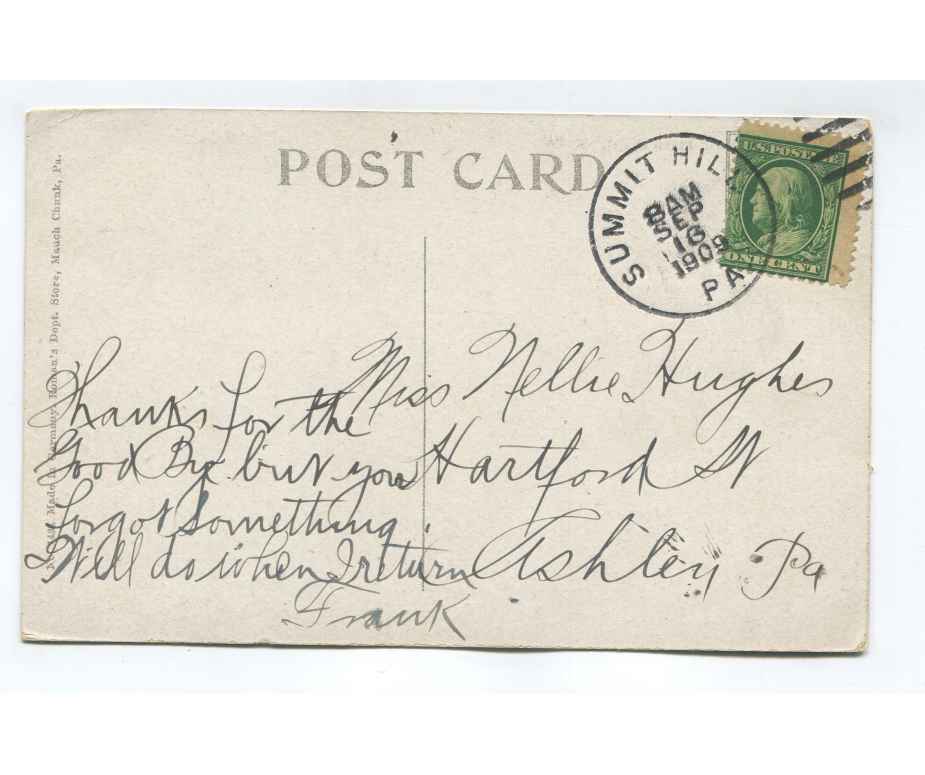 POST CARD
SUMMIT HILL
PA
8 AM
SEP
16
1909
U.S. POSTAGE
ONE CENT
Made in Germany, Dept. Store, Mauch Chunk, Pa.
Thanks for the
Good By but you
forgot something.
Will do when I return
Frank
Miss Nellie Hughes
Hartford St
Ashley Pa